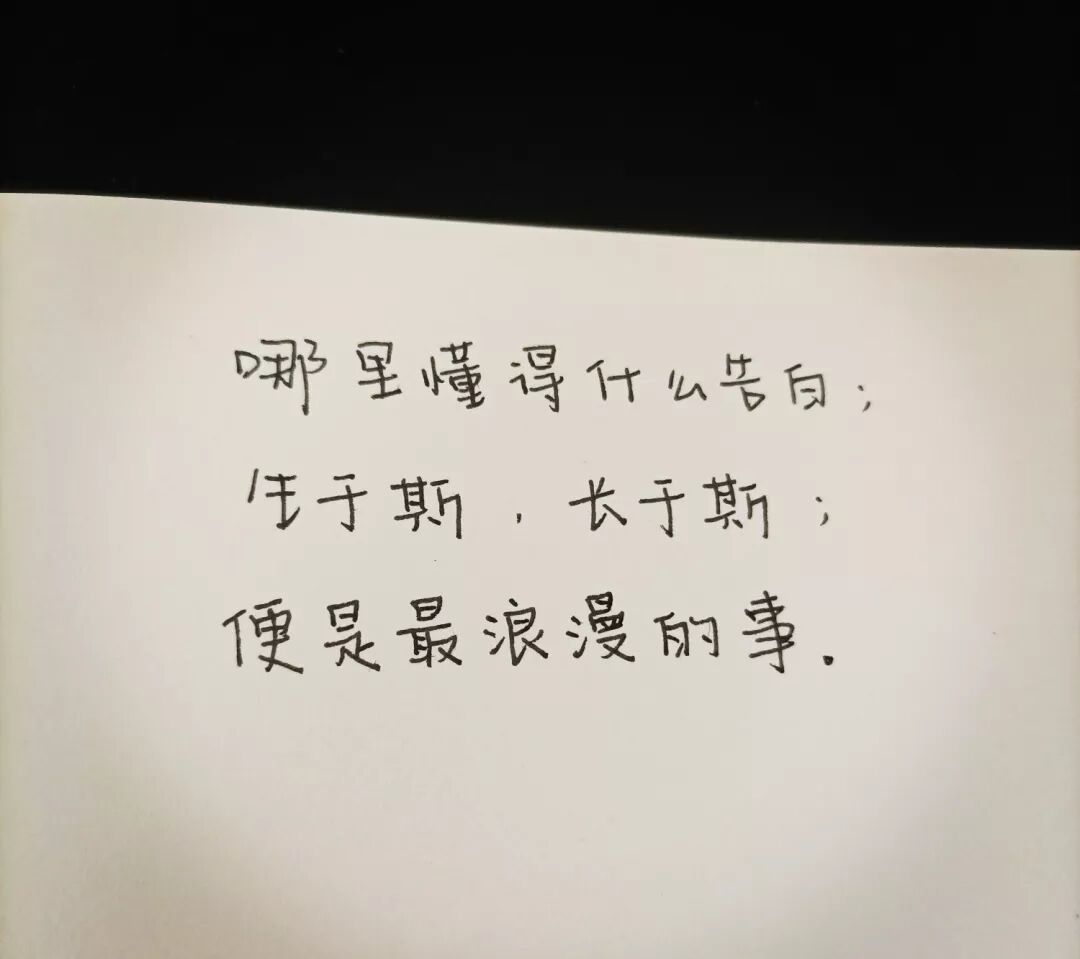 哪里懂得什么告白；
生于斯，长于斯；
便是最浪漫的事.